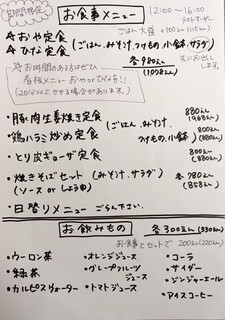 期間限定
お食事メニュー
12:00〜16:00
ラストオーダー
ごはん大盛 +100員(110員)
☆おや定食
☆ひな定食
(ごはん、みそ汁、つけもの、小鉢、サラダ)
各980員
(1078員)
先にお出しします。
☆お時間のある方はぜひ
看板メニュー おやorひなを!!
(20分以上かかる場合があります。)
・豚肉生姜焼き定食
880員
(968員)
・鶏ハラミ炒め定食
(ごはん、みそ汁
つけもの、小鉢)
800員
(880員)
・とり皮ギョーザ定食
・焼きそばセット (みそ汁、サラダ)
(ソース or しょうゆ)
各780員
(858員)
・日替りメニュー ごらん下さい。
お飲みもの
各300員(330員)
お食事とセットで 200員(220員)
・ウーロン茶
・緑茶
・カルピスウォーター
・オレンジジュース
・グレープフルーツジュース
・トマトジュース
・コーラ
・サイダー
・ジンジャーエール
・アイスコーヒー